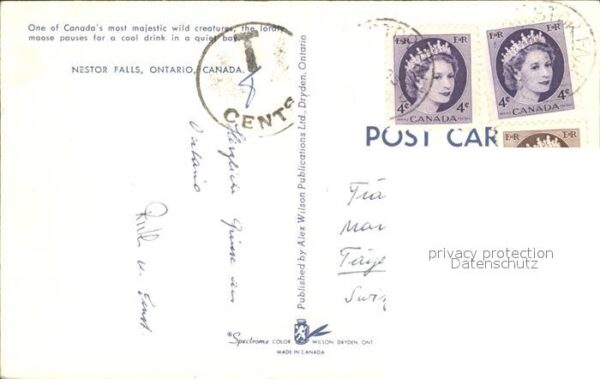 One of Canada's most majestic wild creatures, the lordly
moose pauses for a cool drink in a quiet bay.
NESTOR FALLS, ONTARIO, CANADA.
T
CENTS
Herzliche Grüsse aus
Ontario
Ruth u. Ernst
Published by Alex Wilson Publications Ltd., Dryden, Ontario
E R
4¢ 4¢
CANADA
E R
4¢ 4¢
CANADA
E R
POST CAR
Frä
Mar
Täge
Swit
privacy protection
Datenschutz
Spectrome COLOR WILSON DRYDEN ONT
MADE IN CANADA